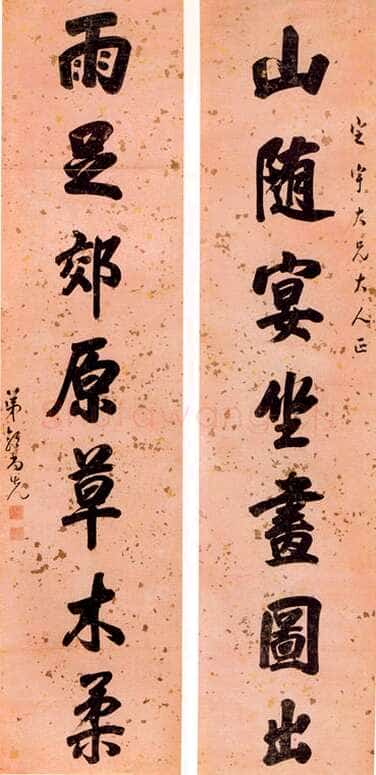 宝宇大兄大人正
山随宴坐畫圖出
雨足郊原草木柔
弟郭尚先